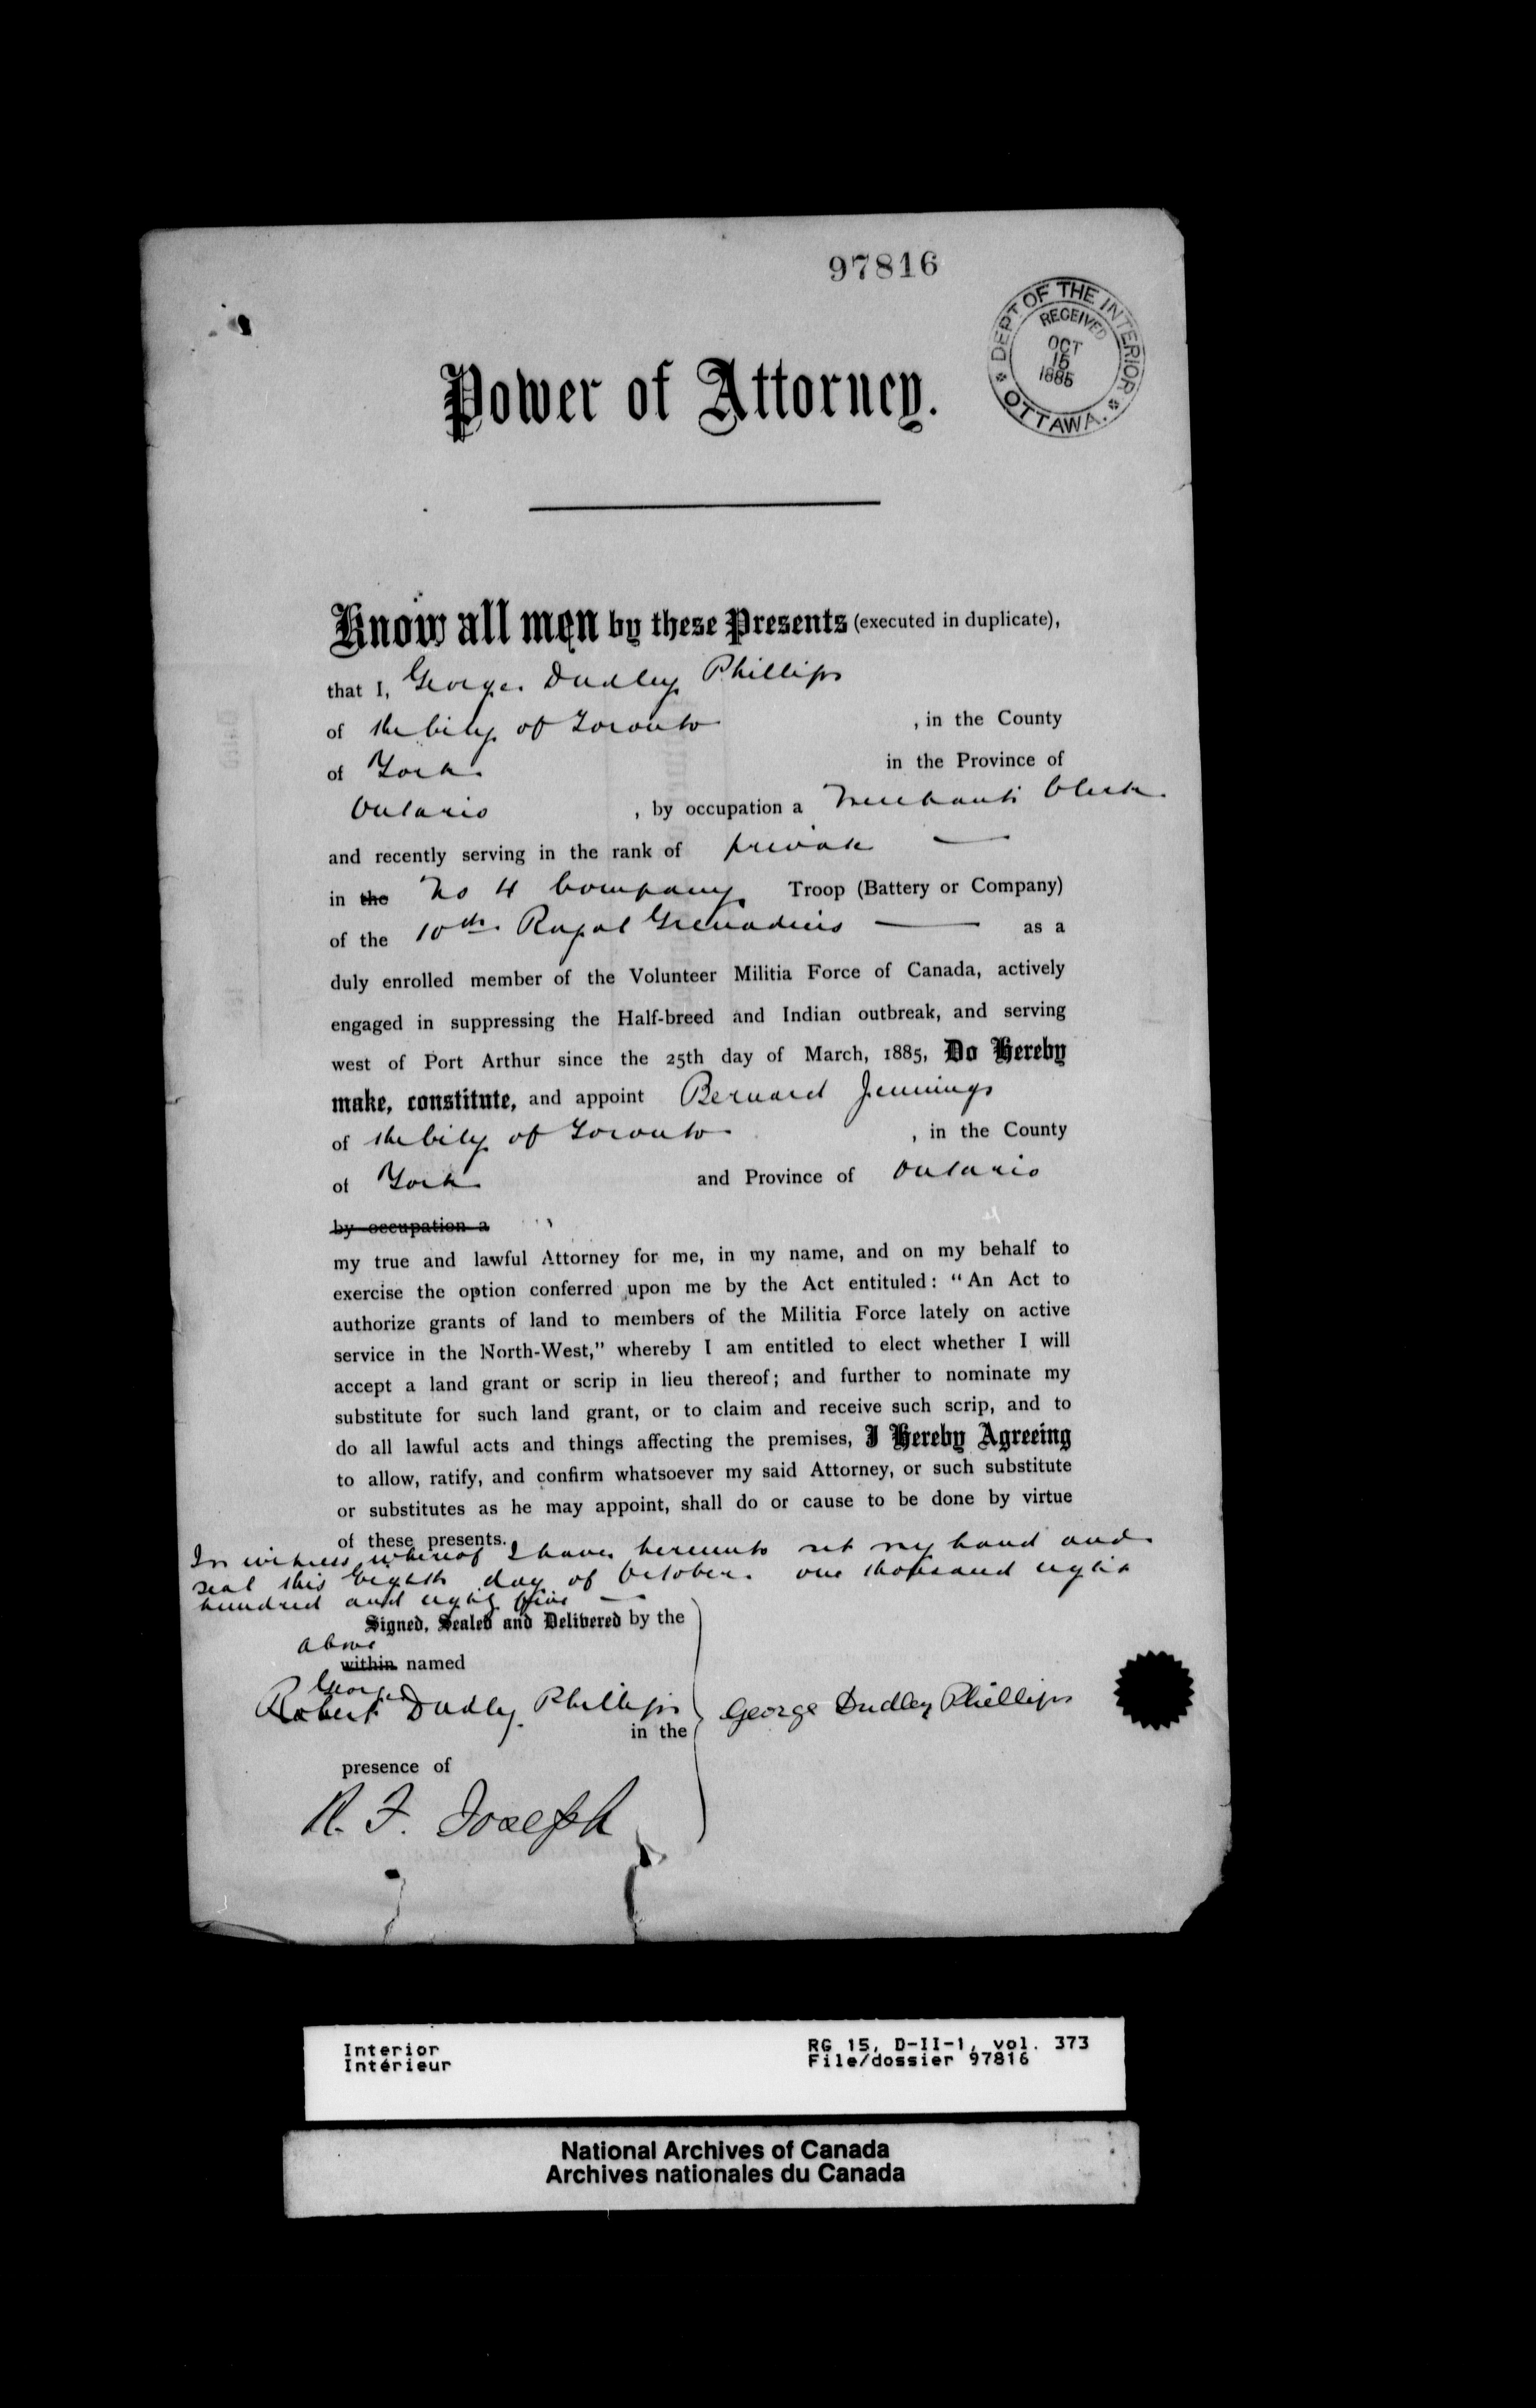 97816
DEPT OF THE INTERIOR
RECEIVED
OCT
15
1885
OTTAWA.
Power of Attorney.
Know all men by these Presents (executed in duplicate),
that I, George Dudley Phillips
of the City of Toronto , in the County
of York in the Province of
Ontario , by occupation a Merchants Clerk
and recently serving in the rank of private
in the No 4 Company Troop (Battery or Company)
of the 10th Royal Grenadiers as a
duly enrolled member of the Volunteer Militia Force of Canada, actively
engaged in suppressing the Half-breed and Indian outbreak, and serving
west of Port Arthur since the 25th day of March, 1885, Do Hereby
make, constitute, and appoint Bernard Jennings
of the City of Toronto , in the County
of York and Province of Ontario
by occupation a
my true and lawful Attorney for me, in my name, and on my behalf to
exercise the option conferred upon me by the Act entituled: "An Act to
authorize grants of land to members of the Militia Force lately on active
service in the North-West," whereby I am entitled to elect whether I will
accept a land grant or scrip in lieu thereof; and further to nominate my
substitute for such land grant, or to claim and receive such scrip, and to
do all lawful acts and things affecting the premises, I Hereby Agreeing
to allow, ratify, and confirm whatsoever my said Attorney, or such substitute
or substitutes as he may appoint, shall do or cause to be done by virtue
of these presents.
In witness whereof I have hereunto set my hand and
seal this Eighth day of October one thousand eight
hundred and eighty five
Signed, Sealed and Delivered by the
above
within named
George
Robert Dudley Phillips
in the
George Dudley Phillips
presence of
R. F. Joseph
Interior RG 15, D-II-1, vol. 373
Intérieur File/dossier 97816
National Archives of Canada
Archives nationales du Canada